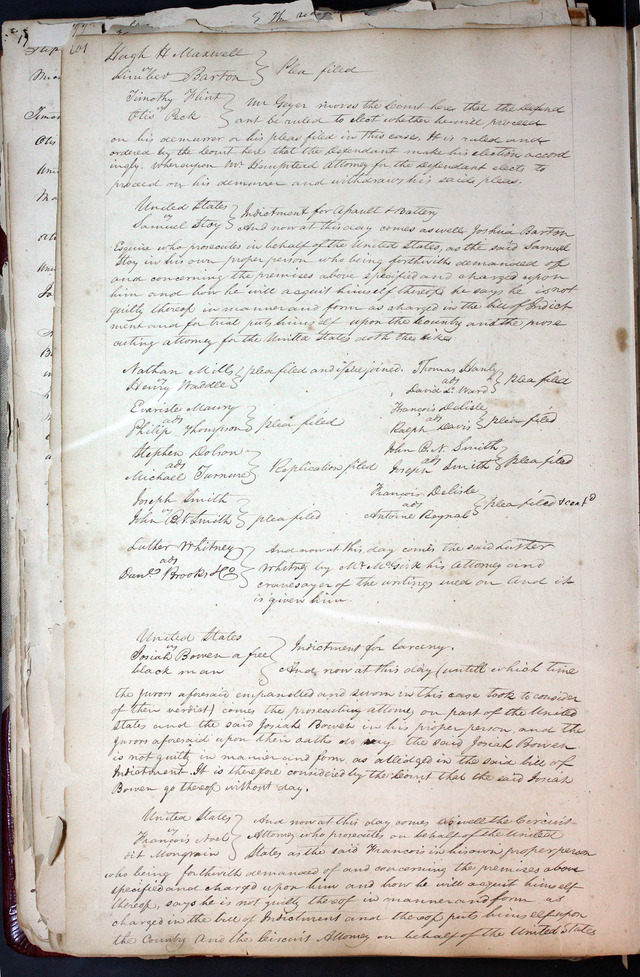 201
Hugh H. Maxwell
vs
Limber Barton } Plea filed
Timothy Flint
vs
Otis Peck } Mr Geyer moves the Court here that the defend
ant be ruled to elect whether he will proceed
on his demurrer or his pleas filed in this case. It is ruled and
ordered by the Court here that the defendant make his election accord
ingly. Whereupon Mr Hempstead Attorney for the defendant elects to
proceed on his demurrer and withdraws his said pleas.
United States
vs
Samuel Stoy } Indictment for Assault & Battery
And now at this day comes as well Joshua Barton
Esquire who prosecutes in behalf of the United States, as the said Samuel
Stoy in his own proper person who being forthwith demanded of
and concerning the premises above specified and charged upon
him and how he will acquit himself thereof, he says he is not
guilty thereof in manner and form as charged in the bill of Indict
ment and for trial puts himself upon the Country and the prose
cuting attorney for the United States doth the like.
Nathan Mills
vs
Henry Waddle } plea filed and issue joined.
Thomas Hanly
ads
David L. Ward } plea filed
Evariste Maury
ads
Philip Thompson } plea filed
François Delisle
ads
Ralph Davis } plea filed
Stephen Dolson
ads
Michael Turnure } Replication filed
John B. N. Smith
ads
Joseph Smith } plea filed
Joseph Smith
vs
John B N Smith } plea filed
François Delisle
ads
Antoine Reynal } plea filed & cont'd
Luther Whitney
ads
Danl. Brooks & Co } And now at this day comes the said Luther
Whitney by Mr McGirk his Attorney and
craves oyer of the writings sued on and it
is given him
United States
vs
Josiah Bowen a free
black man } Indictment for larceny.
And now at this day (untill which time
the jurors aforesaid empanelled and sworn in this case took to consider
of their verdict) comes the prosecuting attorney on part of the United
States and the said Josiah Bowen in his proper person, and the
Jurors aforesaid upon their oaths do say the said Josiah Bowen
is not guilty in manner and form as alledged in the said bill of
Indictment. It is therefore considered by the Court that the said Josiah
Bowen go thereof without day.
United States
vs
François Noel
dit Mongrain } And now at this day comes as well the Circuit
Attorney who prosecutes on behalf of the United
States as the said Francois in his own proper person
who being forthwith demanded of and concerning the premises above
specified and charged upon him and how he will acquit himself
thereof, says he is not guilty thereof in manner and form as
charged in the bill of Indictment and thereof puts himself upon
the Country and the Circuit Attorney on behalf of the United States